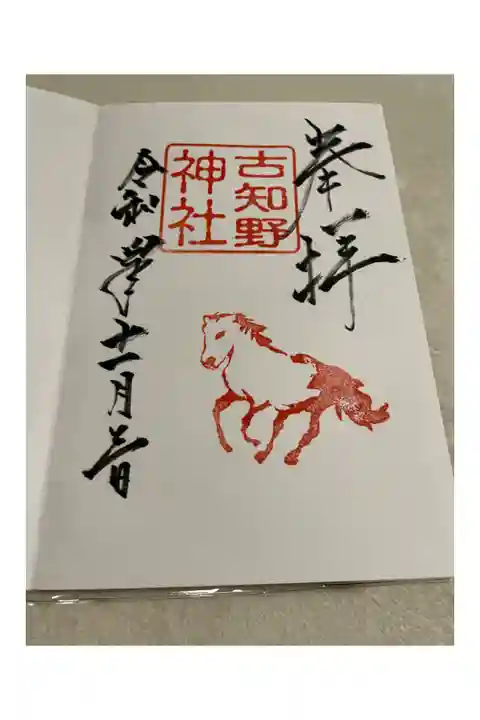 奉拝
古知野
神社
令和 年十一月 日